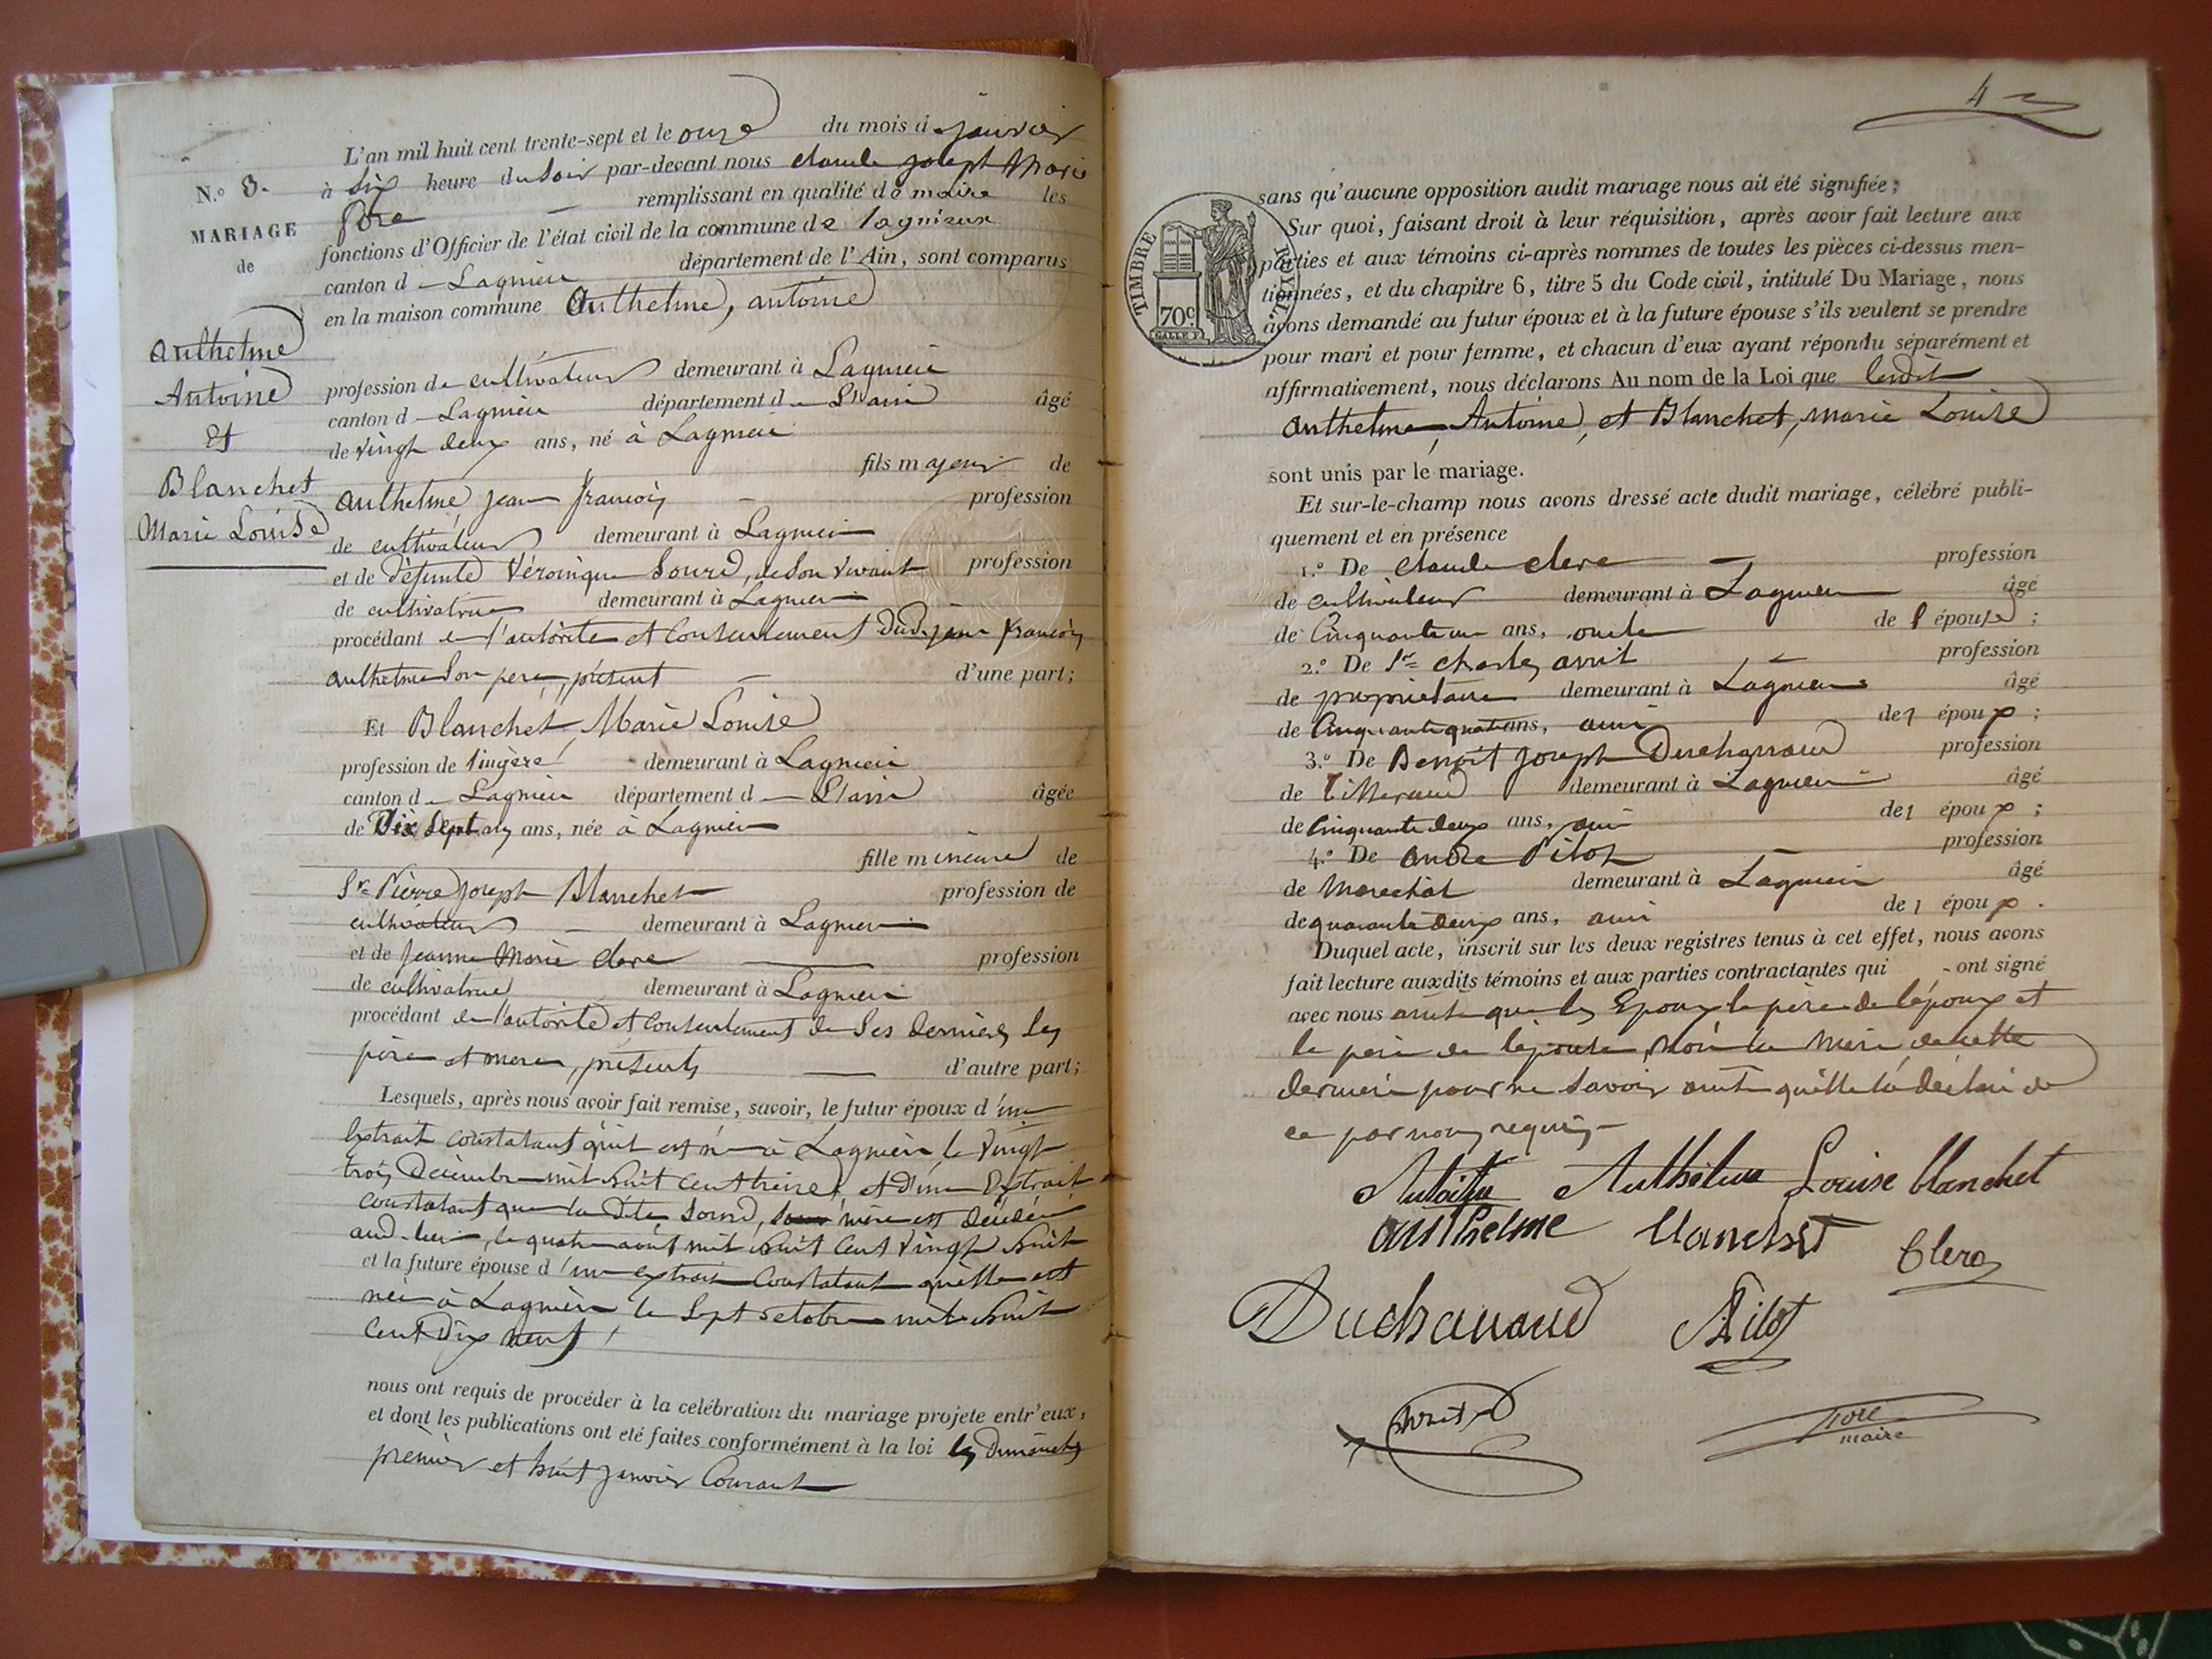 N.º 8.
MARIAGE
de
Anthelme
Antoine
Et
Blanchet
Marie Louise
L'an mil huit cent trente-sept et le onze du mois d janvier
à Six heure du Soir par-devant nous Claude joseph Marie
remplissant en qualité de maire les
fonctions d'Officier de l'état civil de la commune de lagnieux
canton d Lagnieu département de l'Ain, sont comparus
en la maison commune Anthelme, antoine
profession de cultivateur demeurant à Lagnieu
canton d Lagnieu département d L'ain âgé
de vingt deux ans, né à Lagnieu
fils majeur de
anthelme, jean françois profession
de cultivateur demeurant à Lagnieu
et de défunte Véronique Sourd, de Son vivant profession
de cultivatrice demeurant à Lagnieu
procédant de l'autorité et Consentement dud. jean françois
anthelme Son pere, présent d'une part;
Et Blanchet, Marie Louise
profession de lingère demeurant à Lagnieu
canton d Lagnieu département d L'ain âgée
de Dix Sept ans, née à Lagnieu
fille mineure de
Sr. Pierre joseph Blanchet profession de
cultivateur demeurant à Lagnieu
et de Jeanne Marie clerc profession
de cultivatrice demeurant à Lagnieu
procédant de l'autorité et Consentement de Ses derniers Ses
père et mere, présents d'autre part;
Lesquels, après nous avoir fait remise, savoir, le futur époux d'un
Extrait constatant qu'il est né à Lagnieu le vingt
trois Décembre mil huit cent treize, et d'un Extrait
constatant que la dite Sourd, mère est décédée
aud. lieu, le quatre août mil huit Cent vingt huit
et la future épouse d'un extrait Constatant qu'elle est
née à Lagnieu le Sept octobre mil huit
Cent dix neuf,
nous ont requis de procéder à la celébration du mariage projete entr'eux,
et dont les publications ont eté faites conformément à la loi les Dimanches
premier et huit janvier Courant
4
TIMBRE ROYAL.
70c.
sans qu'aucune opposition audit mariage nous ait été signifiée;
Sur quoi, faisant droit à leur réquisition, après avoir fait lecture aux
parties et aux témoins ci-après nommes de toutes les pièces ci-dessus men-
tionnées, et du chapitre 6, titre 5 du Code civil, intitulé Du Mariage, nous
avons demandé au futur époux et à la future épouse s'ils veulent se prendre
pour mari et pour femme, et chacun d'eux ayant répondu séparément et
affirmativement, nous déclarons Au nom de la Loi que lesdits
Anthelme, Antoine, et Blanchet, Marie Louise
sont unis par le mariage.
Et sur-le-champ nous avons dressé acte dudit mariage, célébré publi-
quement et en présence
1.º De Claude clerc profession
de cultivateur demeurant à Lagnieu âgé
de Cinquante un ans, oncle de l épouse;
2.º De Sr. charles avrit profession
de propriétaire demeurant à Lagnieu âgé
de Cinquante quatre ans, ami de l époux;
3.º De Benoît joseph Duchanaud profession
de tisserand demeurant à Lagnieu âgé
de Cinquante deux ans, ami de l époux;
4.º De andré Pilot profession
de Marechal demeurant à Lagnieu âgé
de quarante deux ans, ami de l époux.
Duquel acte, inscrit sur les deux registres tenus à cet effet, nous avons
fait lecture auxdits témoins et aux parties contractantes qui ont signé
avec nous ainsi que les Epoux le père de l'époux et
le père de l'épouse, non la Mère de cette
dernière pour ne Savoir ainsi qu'elle l'a déclaré de
ce par nous requis
Antoine Anthelme Louise blanchet
anthelme blanchet Clerc
Duchanaud Pilot
avrit
maire